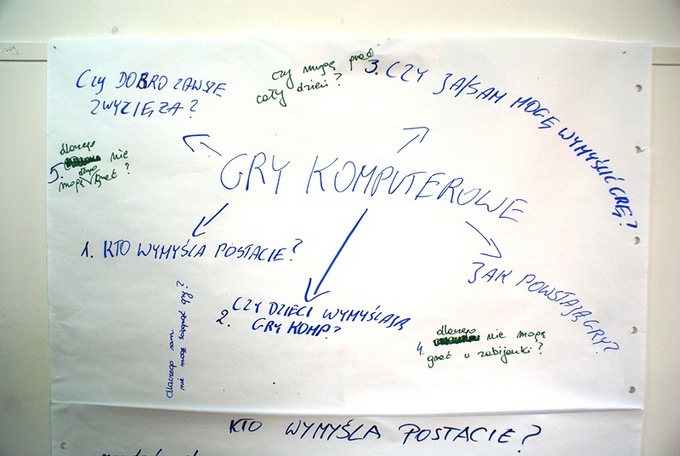 Czy DOBRO ZAWSZE
ZWYCIĘŻA?
czy mogę grać
cały dzień?
3. CZY JA/SAM MOGĘ WYMYŚLIĆ GRĘ?
5. dlaczego nie
mogę długo grać?
GRY KOMPUTEROWE
1. KTO WYMYŚLA POSTACIE?
2. CZY DZIECI WYMYŚLAJĄ
GRY KOMP?
JAK POWSTAJĄ GRY?
4. dlaczego nie mogę
grać w zabijanki?
dlaczego sam
KTO WYMYŚLA POSTACIE?